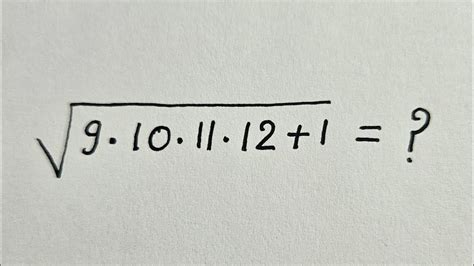 √9·10·11·12+1 = ?